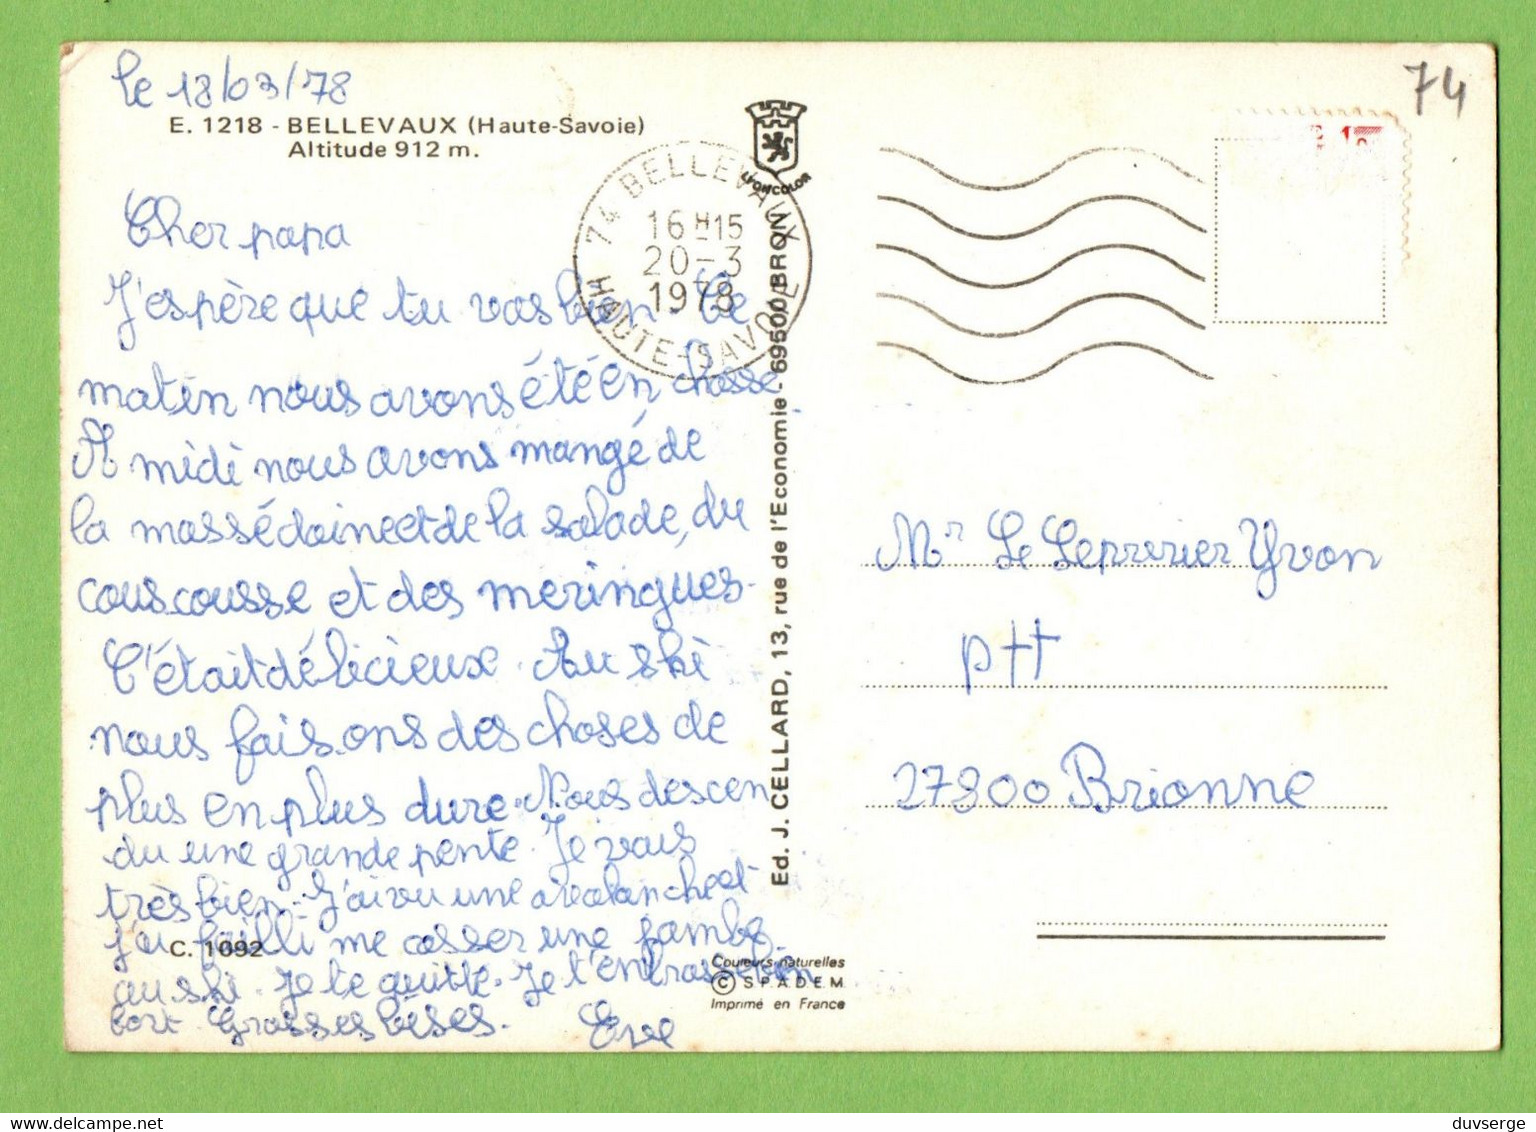 le 18/03/78
E. 1218 - BELLEVAUX (Haute-Savoie)
Altitude 912 m.
Cher papa
J'espère que tu vas bien. Ce
matin nous avons été en classe
A midi nous avons mangé de
la massédoine et de la salade, du
couscousse et des meringues.
C'était délicieux. Au ski
nous faisons des choses de
plus en plus dure. Nous descen
du une grande pente. Je vais
très bien. J'ai vu une avalanche et
j'ai failli me casser une jambe
au ski. Je te quitte. Je t'embrasse bien
fort. Grosses bises.
Eve
C. 1092
LYONCOLOR
74 BELLEVAUX
16 H 15
20-3
1978
HAUTE-SAVOIE
Ed. J. CELLARD, 13, rue de l'Economie - 69500 BRON
Couleurs naturelles
© S.P.A.D.E.M.
Imprimé en France
74
Mr Le Leprerier Yvon
ptt
27800 Brionne
duvserge